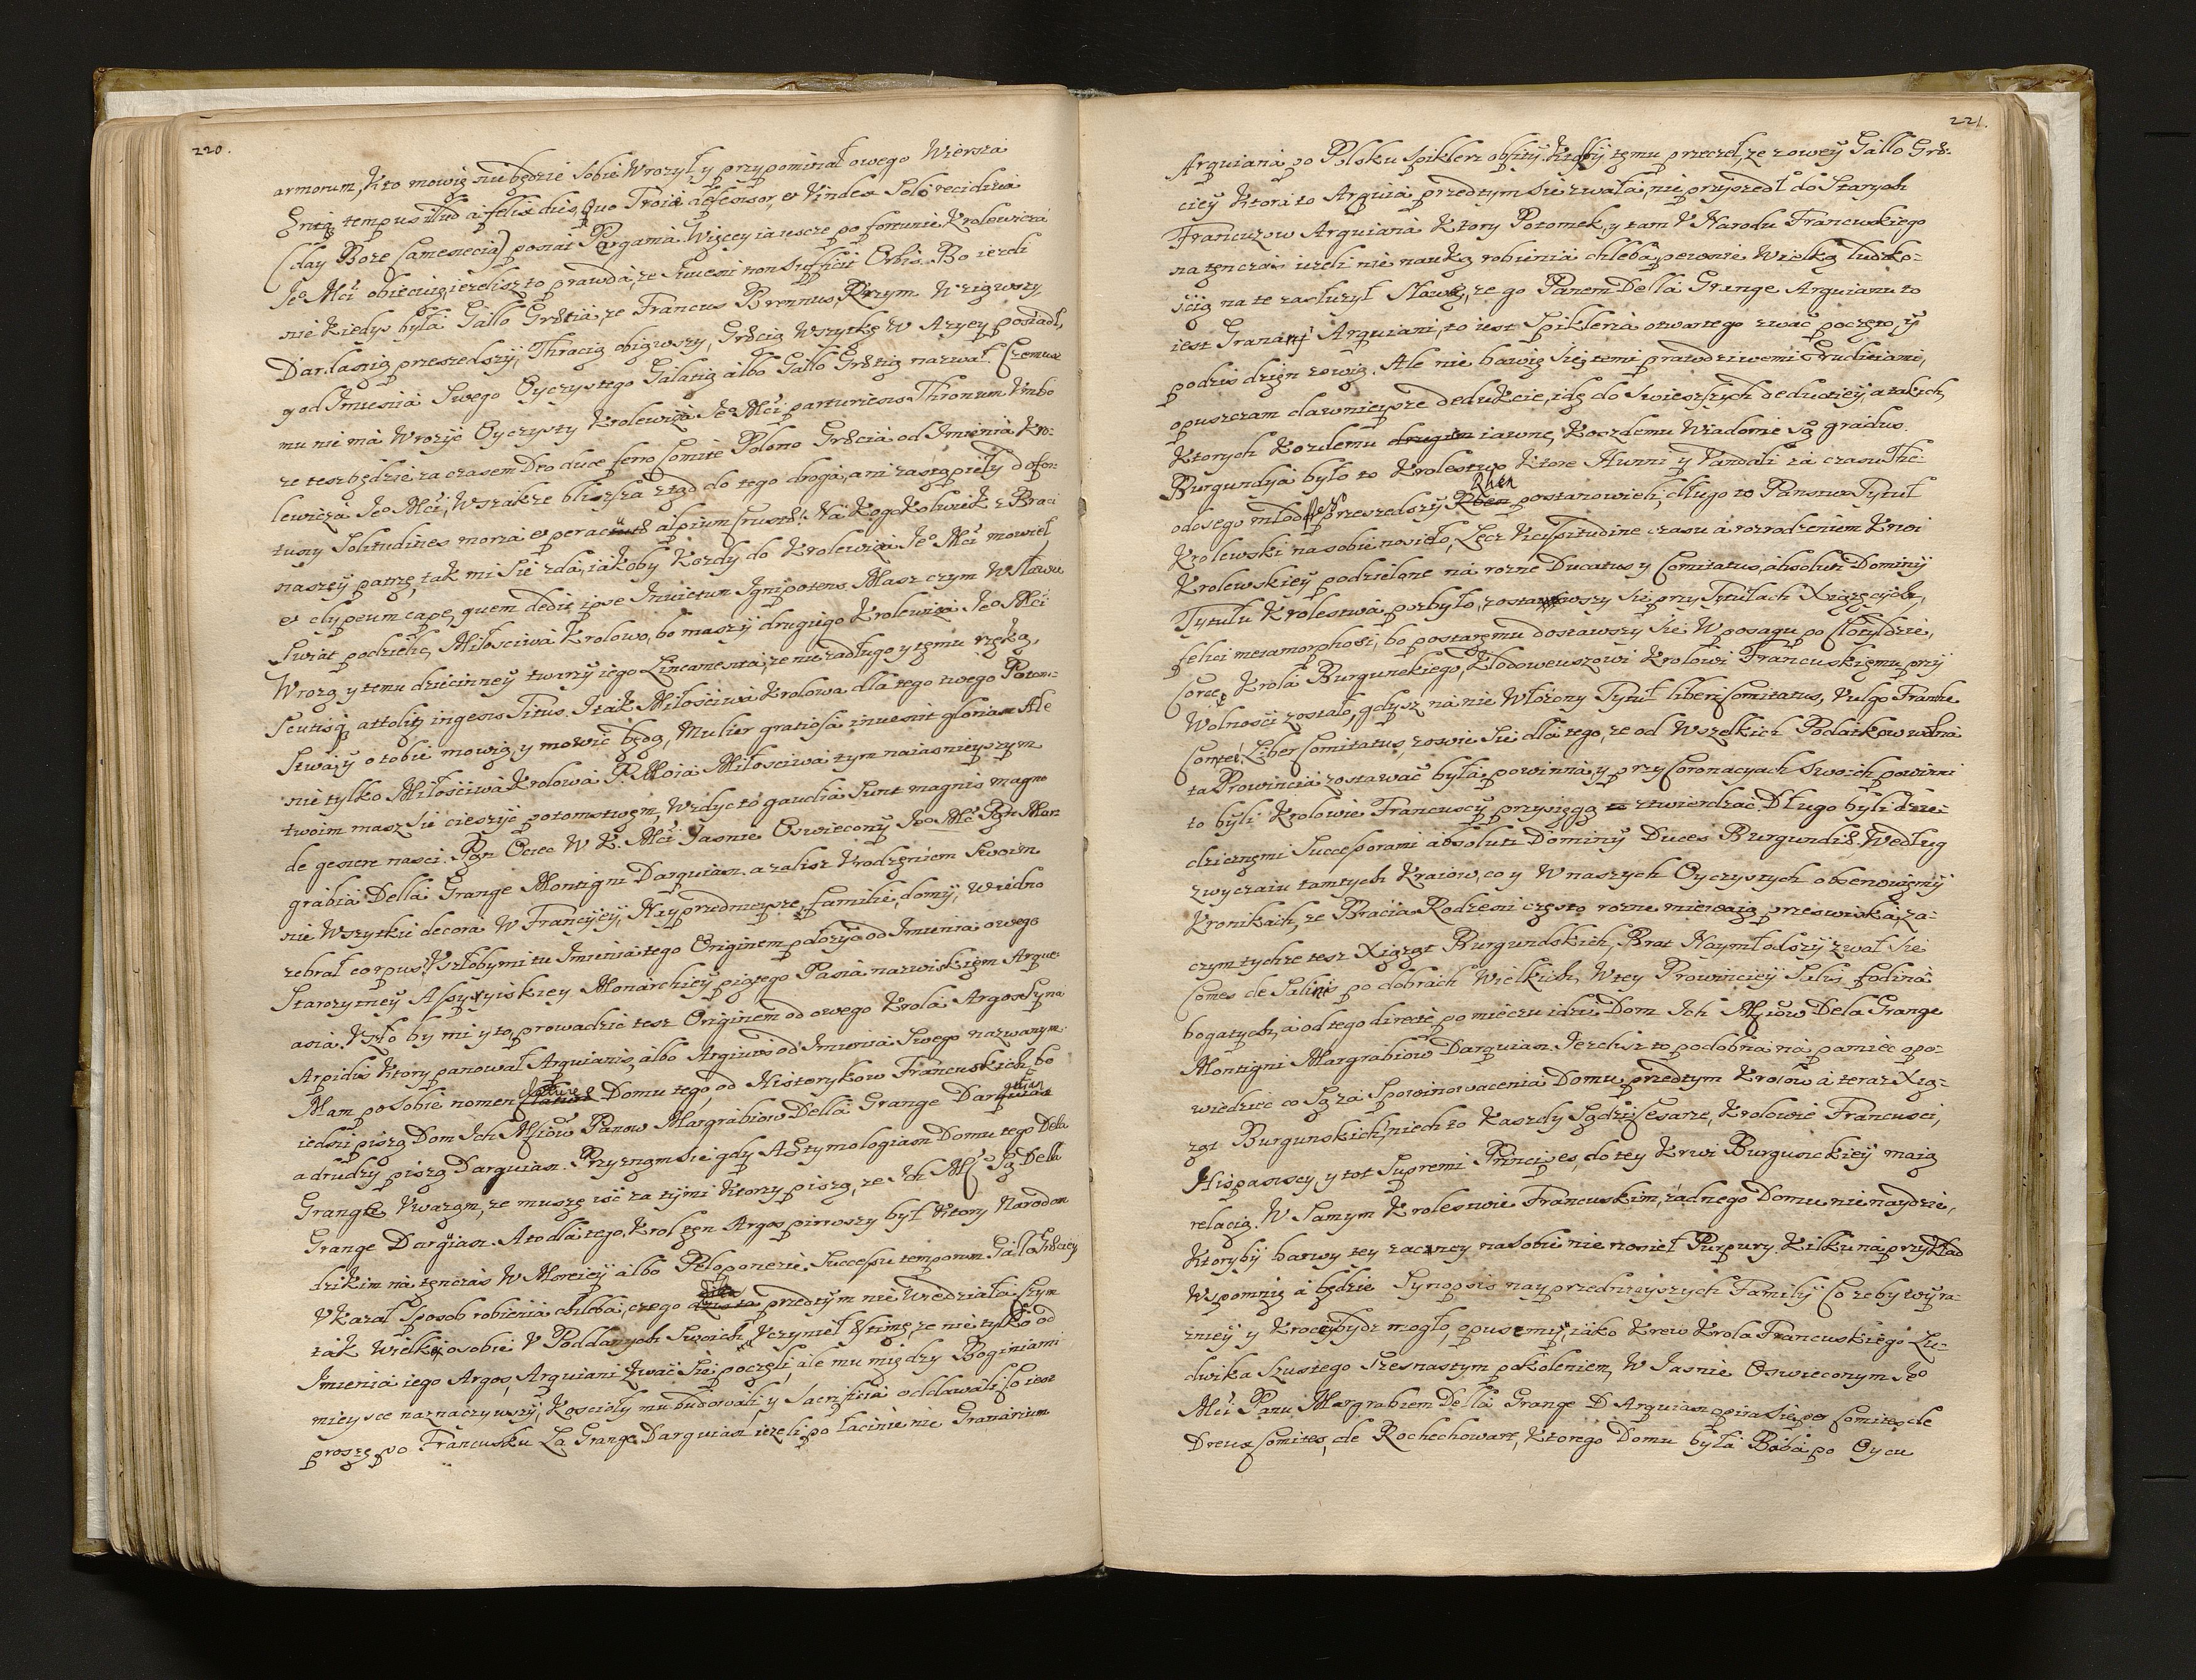 220.
armorum, Kto mowię niebędzie sobie Wrozył, y przypominał owego Wiersza
tempus illud à felix dies, Quo Troiæ defensor, et Vindex
(day Boze Camenecia) ponat Pergama. Więcey ia iescze po fortunie Krolewica
Jeo Mći obiecuię, ieżelisz to prawda, ze non sufficit Orbis. Bo iezeli
nie kiedys była Gallo Græcia, ze Francus Brennus, Rzym Wziąwszy,
przeszedszy, Thracią obiąwszy, Græcią Wszytkę W Azyey posiadł,
y od Imienia Swego Oyczystego Galatią albo Gallo Græcią nazwał. Czemusz
mu nie ma Wrozyć Oyczysty Krolewica Jeo Mći parturiens Thronum
ze tesz będzie za czasem Duce ferro Comite Polono Græcia od Imienia Kro-
lewicza Jeo Mći, Wszakze bliszsza ztąd do tego droga, ani zastąpieły do for-
tuny Solitudines maria et alpium. Na Kogo Kolwiek z Braci
naszey patrzę, tak mi się zda, iakoby Kozdy do Krolewica Jeo Mći mowieł
et clypeum cape, quem dedit ipse Inuictum Ignipotens. Masz czym W Sławie
Swiat podzielić, Miłosciwa Krolowo, bo maszy drugiego Krolewica Jeo Mći
Wrozą y temu dziecinney twarzy iego Lineamenta, ze niezadługo y temu rzeką,
attolit ingens Titus. Itak Miłościwa Krolowa dla tego twego Potom-
stwa, y o tobie mowią, y mowić będą, Mulier gratiosa inuenit gloriam. Ale
nie tylko Miłościwa Krolowa P. Moia Miłosciwa tym naiasnieyszym
twoim masz się cieszyć potomstwem, Wzdyc to gaudia Sunt magnis magno
de genere nasci. Pan Ociec W K. Mći Jasnie Oswiecony Jeo Mć Pan Mar-
grabia Della Grange Montigni Darquian. azalisz Vrodzeniem Swoim
nie Wszytkie decora W Francyiey, Nayprzednieysze familie, domy, w iedno
zebrał corpus? Vszłoby mi tu Imienia tego Originem połozyć od Imienia owego
Starozytney Assyryiskiey Monarchiey piątego Pana nazwiskiem
asia. Vszło by mi y to, prowadzić tesz Originem od owego Krola Argos Syna
Apidis Ktory panował Arguianis, albo Argiuis od Imienia Swego nazwanym.
Mam po Sobie nomen Domu tego, od Historykow Francuskich, bo
iedni piszą Dom Ich Mciow Panow Margrabiow Della Grange Darquian
a drudzy piszą Darguian. Przyznam się gdy Domu tego Dela
Grange Vwazam, ze muszę iść za tymi Ktorzy piszą, ze Ich Mć Są Della
Grange Dargian. A to dla tego, Krol ten Argos pierwszy był Ktory Narodom
dzikim na tenczas W Moreiey albo Peloponezie. Successu temporum Gallo Græciey
Vkazał Sposob robienia chleba, czego przedtym nie Wiedziała. Czym
tak Wielką o sobie V Poddanych Swoich Vczynieł æstimę, ze nie tylko od
Imienia iego Argos, Arguiani zwać się poczęli, ale mu między Boginiami
mieysce naznaczywszy, Koscioły mu budowali y Sacrificia oddawali. Co iest
proszę po Francusku La Grange Darguian ieżeli po łacinie nie Granarium
221.
Arguiana po Polsku Spiklerz obfity. Ktosby temu przeczeł, ze z owey Gallo Græ-
ciey Ktora to Arguia przedtym się zwała, nie przyszedł do Starych
Francuzow Arguiana Ktory Potomek, y tam V Narodu Francuskiego
na tenczas iezeli nie nauką robienia chleba, pewnie Wielką ludzko-
ścią na te zasłuzył Sławę, ze go Panem Della Grange Arguianu to
iest Granarij Arguiani, to iest Spiklerza otwartego zwać poczęto y
podzis dzien zowią. Ale nie bawię się temi prawdziwemi
opuszczam dawnieysze dedukcie, idę do Swieszszych deductiey, a takich
Ktorych Kozdemu iawne, Kozdemu Wiadome są gradus.
Burgundya było to Krolestwo Ktore Hunni y Vandali za czasu The-
odosego młodszego przeszedszy Rhen postanowieli, długo to Panstwo Tytuł
Krolewski na sobie nosieło, Lecz Vicissitudine czasu à rozrodzeniem Krwi
Krolewskiey podzielone na rozne Ducatus y Comitatus, absoluti Dominij
Tytułu Krolestwa pozbyło, zostawszy się przy Tytułach Xiązęcych,
felici metamorphosi, bo postaremu dostawszy się W posagu po Clotyldzie,
Corce Krola Burgunskiego, Klodoweuszowi Krolowi Francuskiemu przy
Wolności zostało, gdysz na nie Włozony Tytuł liberi Comitatus, Vulgo Franche
Comté. Liber Comitatus, zowie się dla tego, ze od Wszelkich Podatkow wolna
ta Prowincia zostawać była powinna, y przy Coronacyach Swoich powinni
to byli Krolowie Francuscy przysięgą ztwierdzać. Długo byli dzie-
dzicznemi Successorami absoluti Dominij Duces Burgundiæ. Według
zwyczaiu tamtych Kraiow, co y W naszych Oyczystych obserwuiemy
Kronikach, ze Bracia Rodzeni często rozne miewaią przezwiska, za-
czym tychze tesz Xiążąt Burgundskich, Brat Naymłodszy zwał się
Comes de Salinis po dobrach Wielkich, W tey Prowinciey Salis fodina
bogatych, a od tego directe po mieczu idzie Dom Ich Mciow Dela Grange
Montigni Margrabiow Darquian. Jezelisz to podobna na pamiec opo-
wiedziec co Są za Spowinowacenia Domu przedtym Krolow a teraz Xią-
ząt Burgunskich, niech to Kaszdy Sądzi. Cesarze, Krolowie Francusci,
Hispanscy, y tot Supremi Principes, do tey Krwi Burgunckiey maią
relacią. W Samym Krolestwie Francuskim, zadnego Domu nie naydzie,
Ktoryby barwy tey zacney na sobie nie nonieł Purpury. Kilku na przykład
Wspomnię a będzie Synopsis nayprzednieyszych Familij Co zeby wyra-
zniey y Krocey bydz mogło, opusemy, iako Krew Krola Francuskiego Lu-
dwika Szustego Szesnastym pokoleniem, W Jasnie Oswieconym Jeo
Mći Panu Margrabiem Della Grange D Arquian opira się per Comites de
Dreux Comites, de Rochechowart, Ktorego Domu była Baba po Oycu